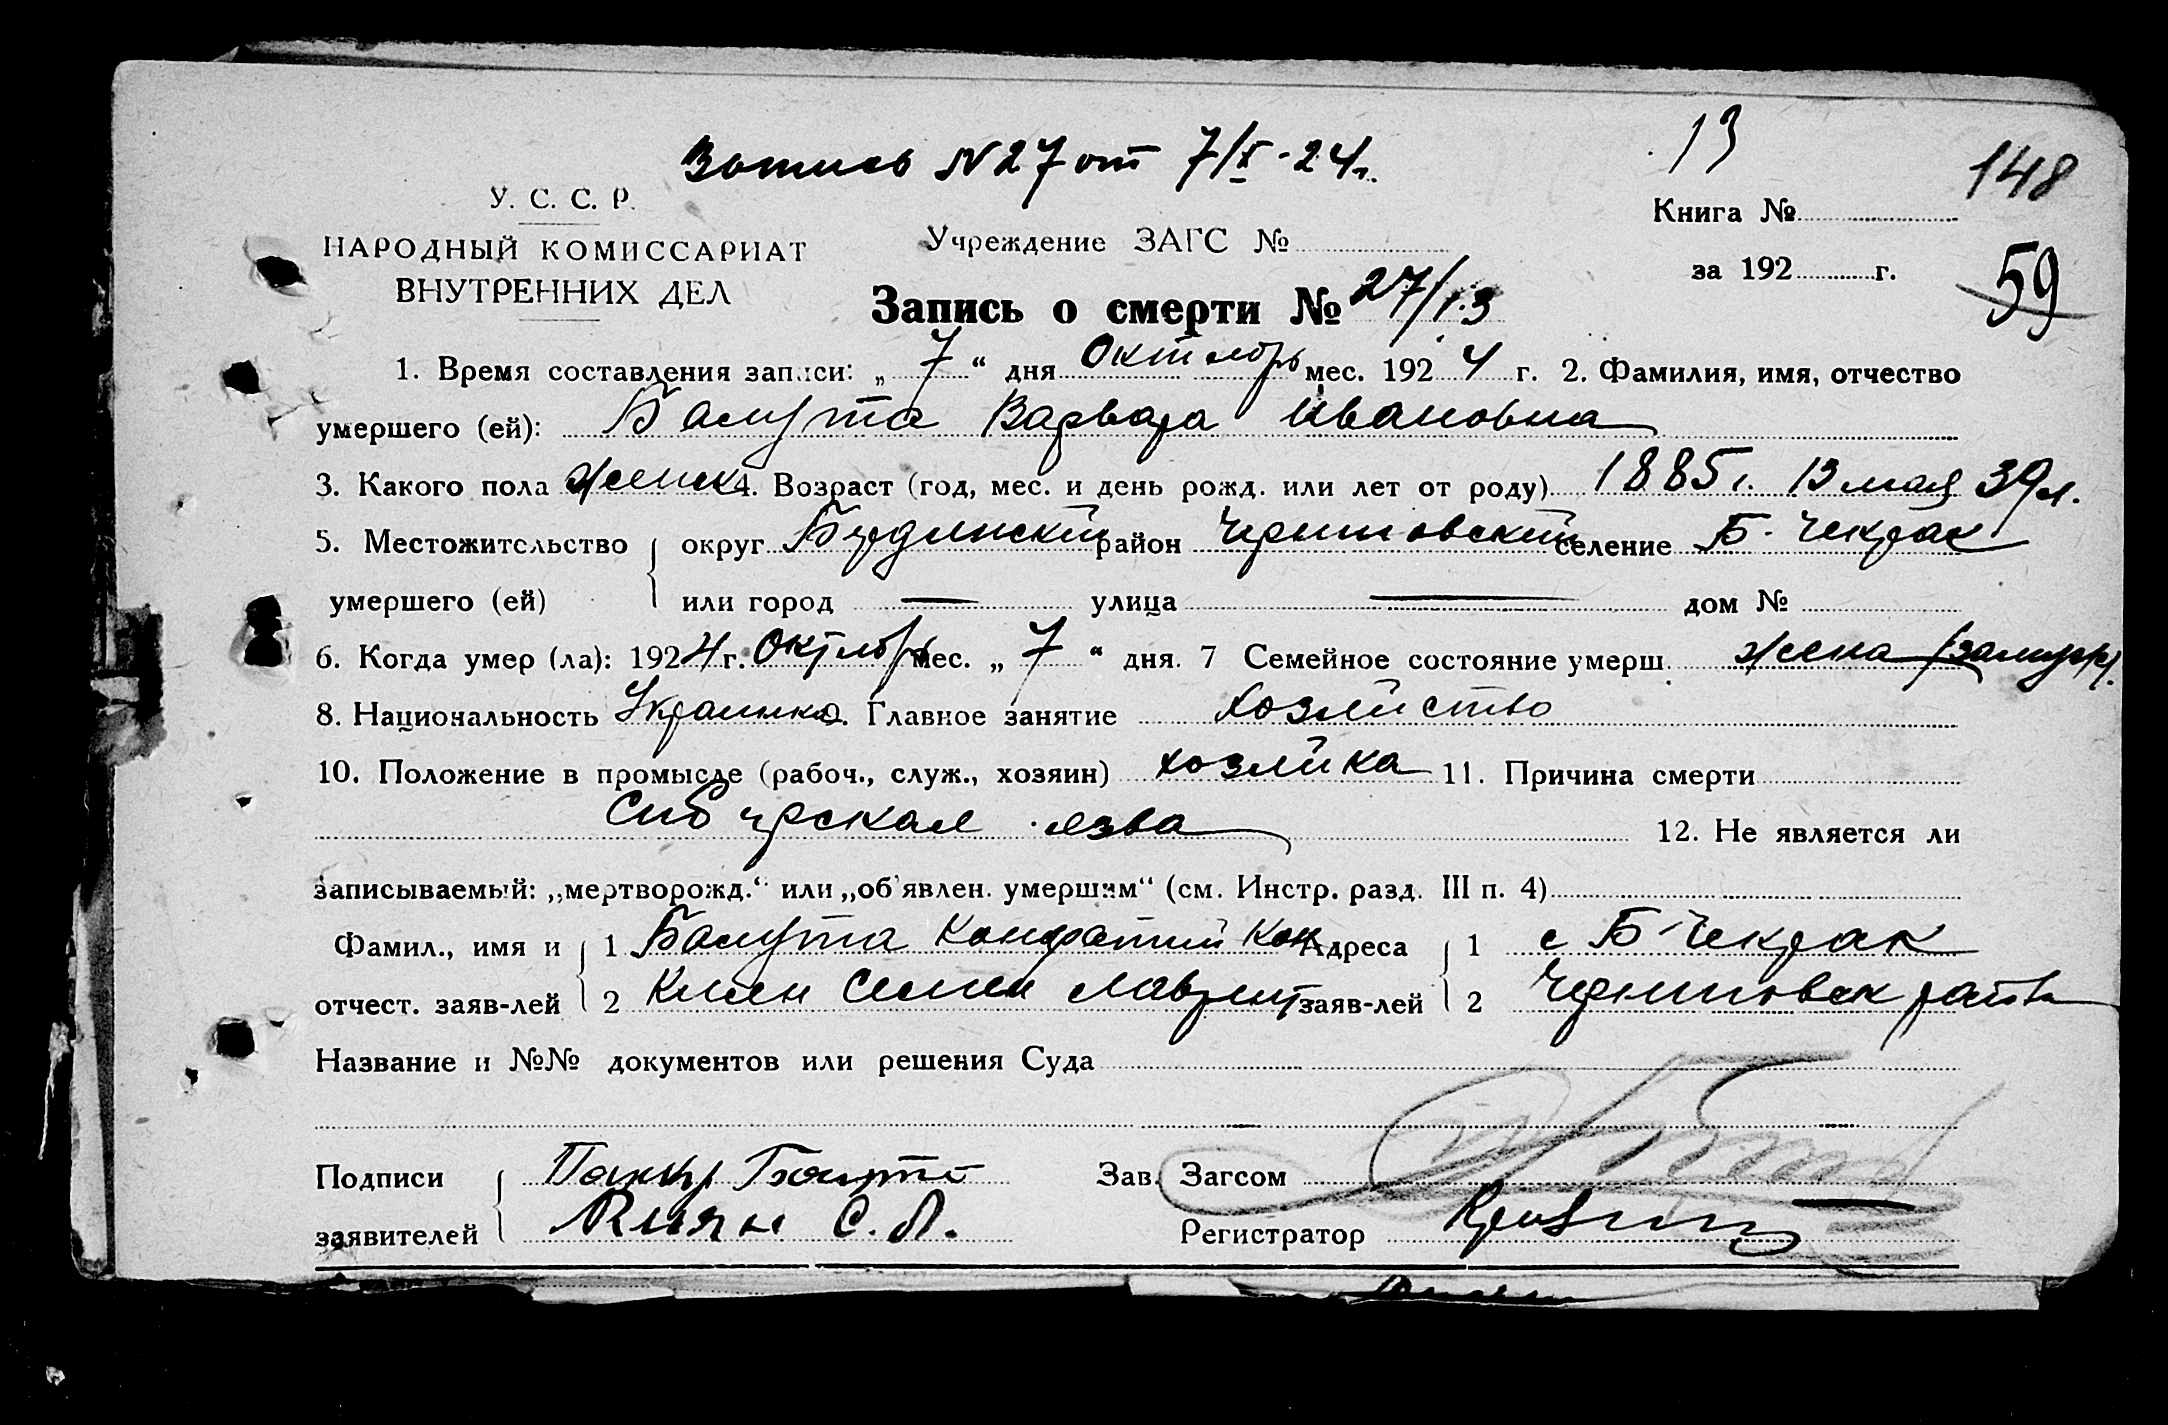 Запись N 27 от 7/X-24г.
13
148
У. С. С. Р.
НАРОДНЫЙ КОМИССАРИАТ
ВНУТРЕННИХ ДЕЛ
Учреждение ЗАГС №
Книга №
за 192 г.
59
Запись о смерти № 27/13
1. Время составления записи: „ 7 “ дня Октябрь мес. 192 4 г. 2. Фамилия, имя, отчество
умершего (ей): Балута Варвара Ивановна
3. Какого пола женск 4. Возраст (год, мес. и день рожд. или лет от роду) 1885г. 13 мая 39 л.
5. Местожительство округ район Черниговский селение Б. Чекрак
умершего (ей) или город — улица — дом №
6. Когда умер (ла): 192 4 г. Октябрь мес. „ 7 “ дня. 7 Семейное состояние умерш. жена (замуж).
8. Национальность Украинка. Главное занятие хозяйство
10. Положение в промысле (рабоч., служ., хозяин) хозяйка 11. Причина смерти
Сибирская язва 12. Не является ли
записываемый: „мертворожд.“ или „об'явлен. умершим“ (см. Инстр. разд. III п. 4)
Фамил., имя и 1 Балута Кондратий Кон Адреса 1 с Б-Чекрак
отчест. заяв-лей 2 Киян Семен Лаврент заяв-лей 2 Черниговск района
Название и №№ документов или решения Суда
Подписи Балута Зав. Загсом
заявителей Киян С. Л. Регистратор